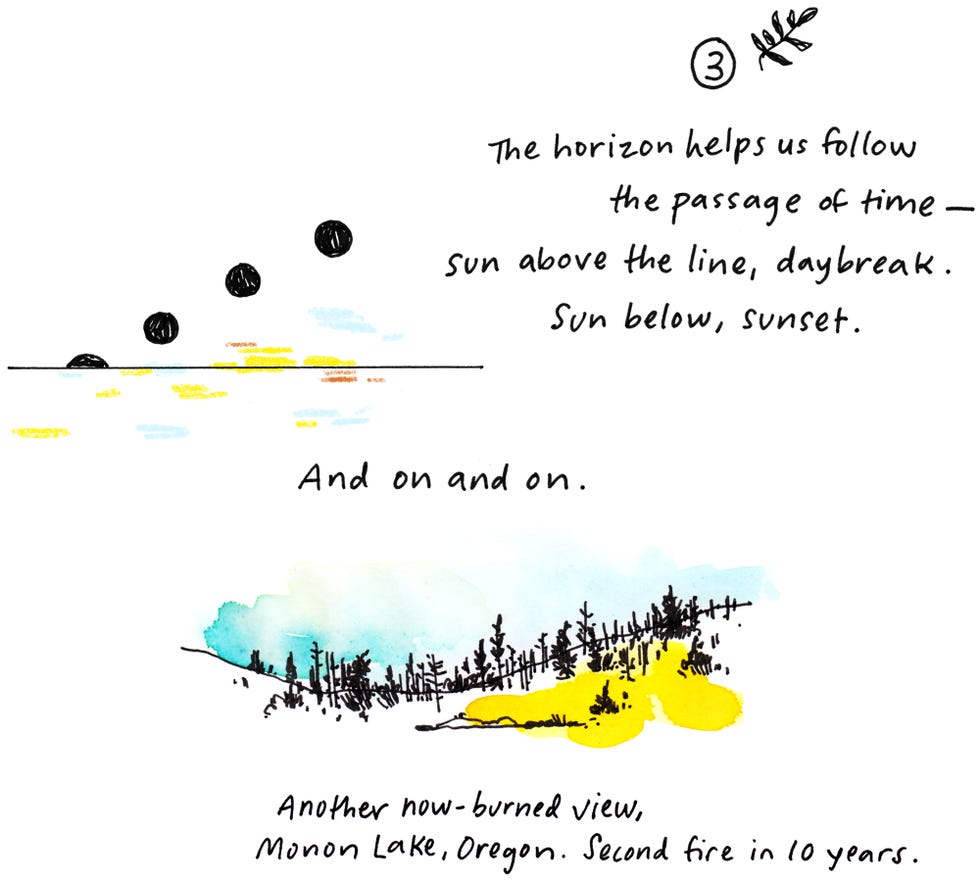 3
The horizon helps us follow
the passage of time —
sun above the line, daybreak.
Sun below, sunset.
And on and on.
Another now-burned view,
Monon Lake, Oregon. Second fire in 10 years.